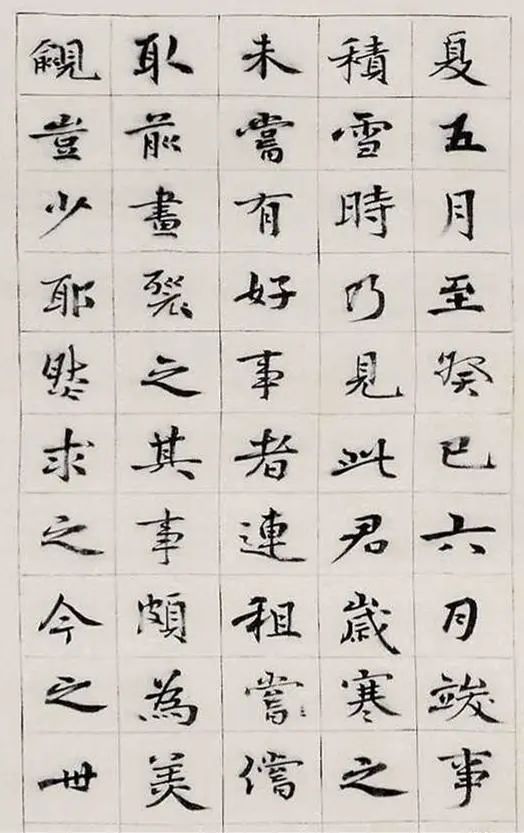 夏五月至癸巳六月竣事
積雪時乃見此君歲寒之
未嘗有好事者連租嘗償
取前畫裂之其事頗為美
覩豈少耶然求之今之世